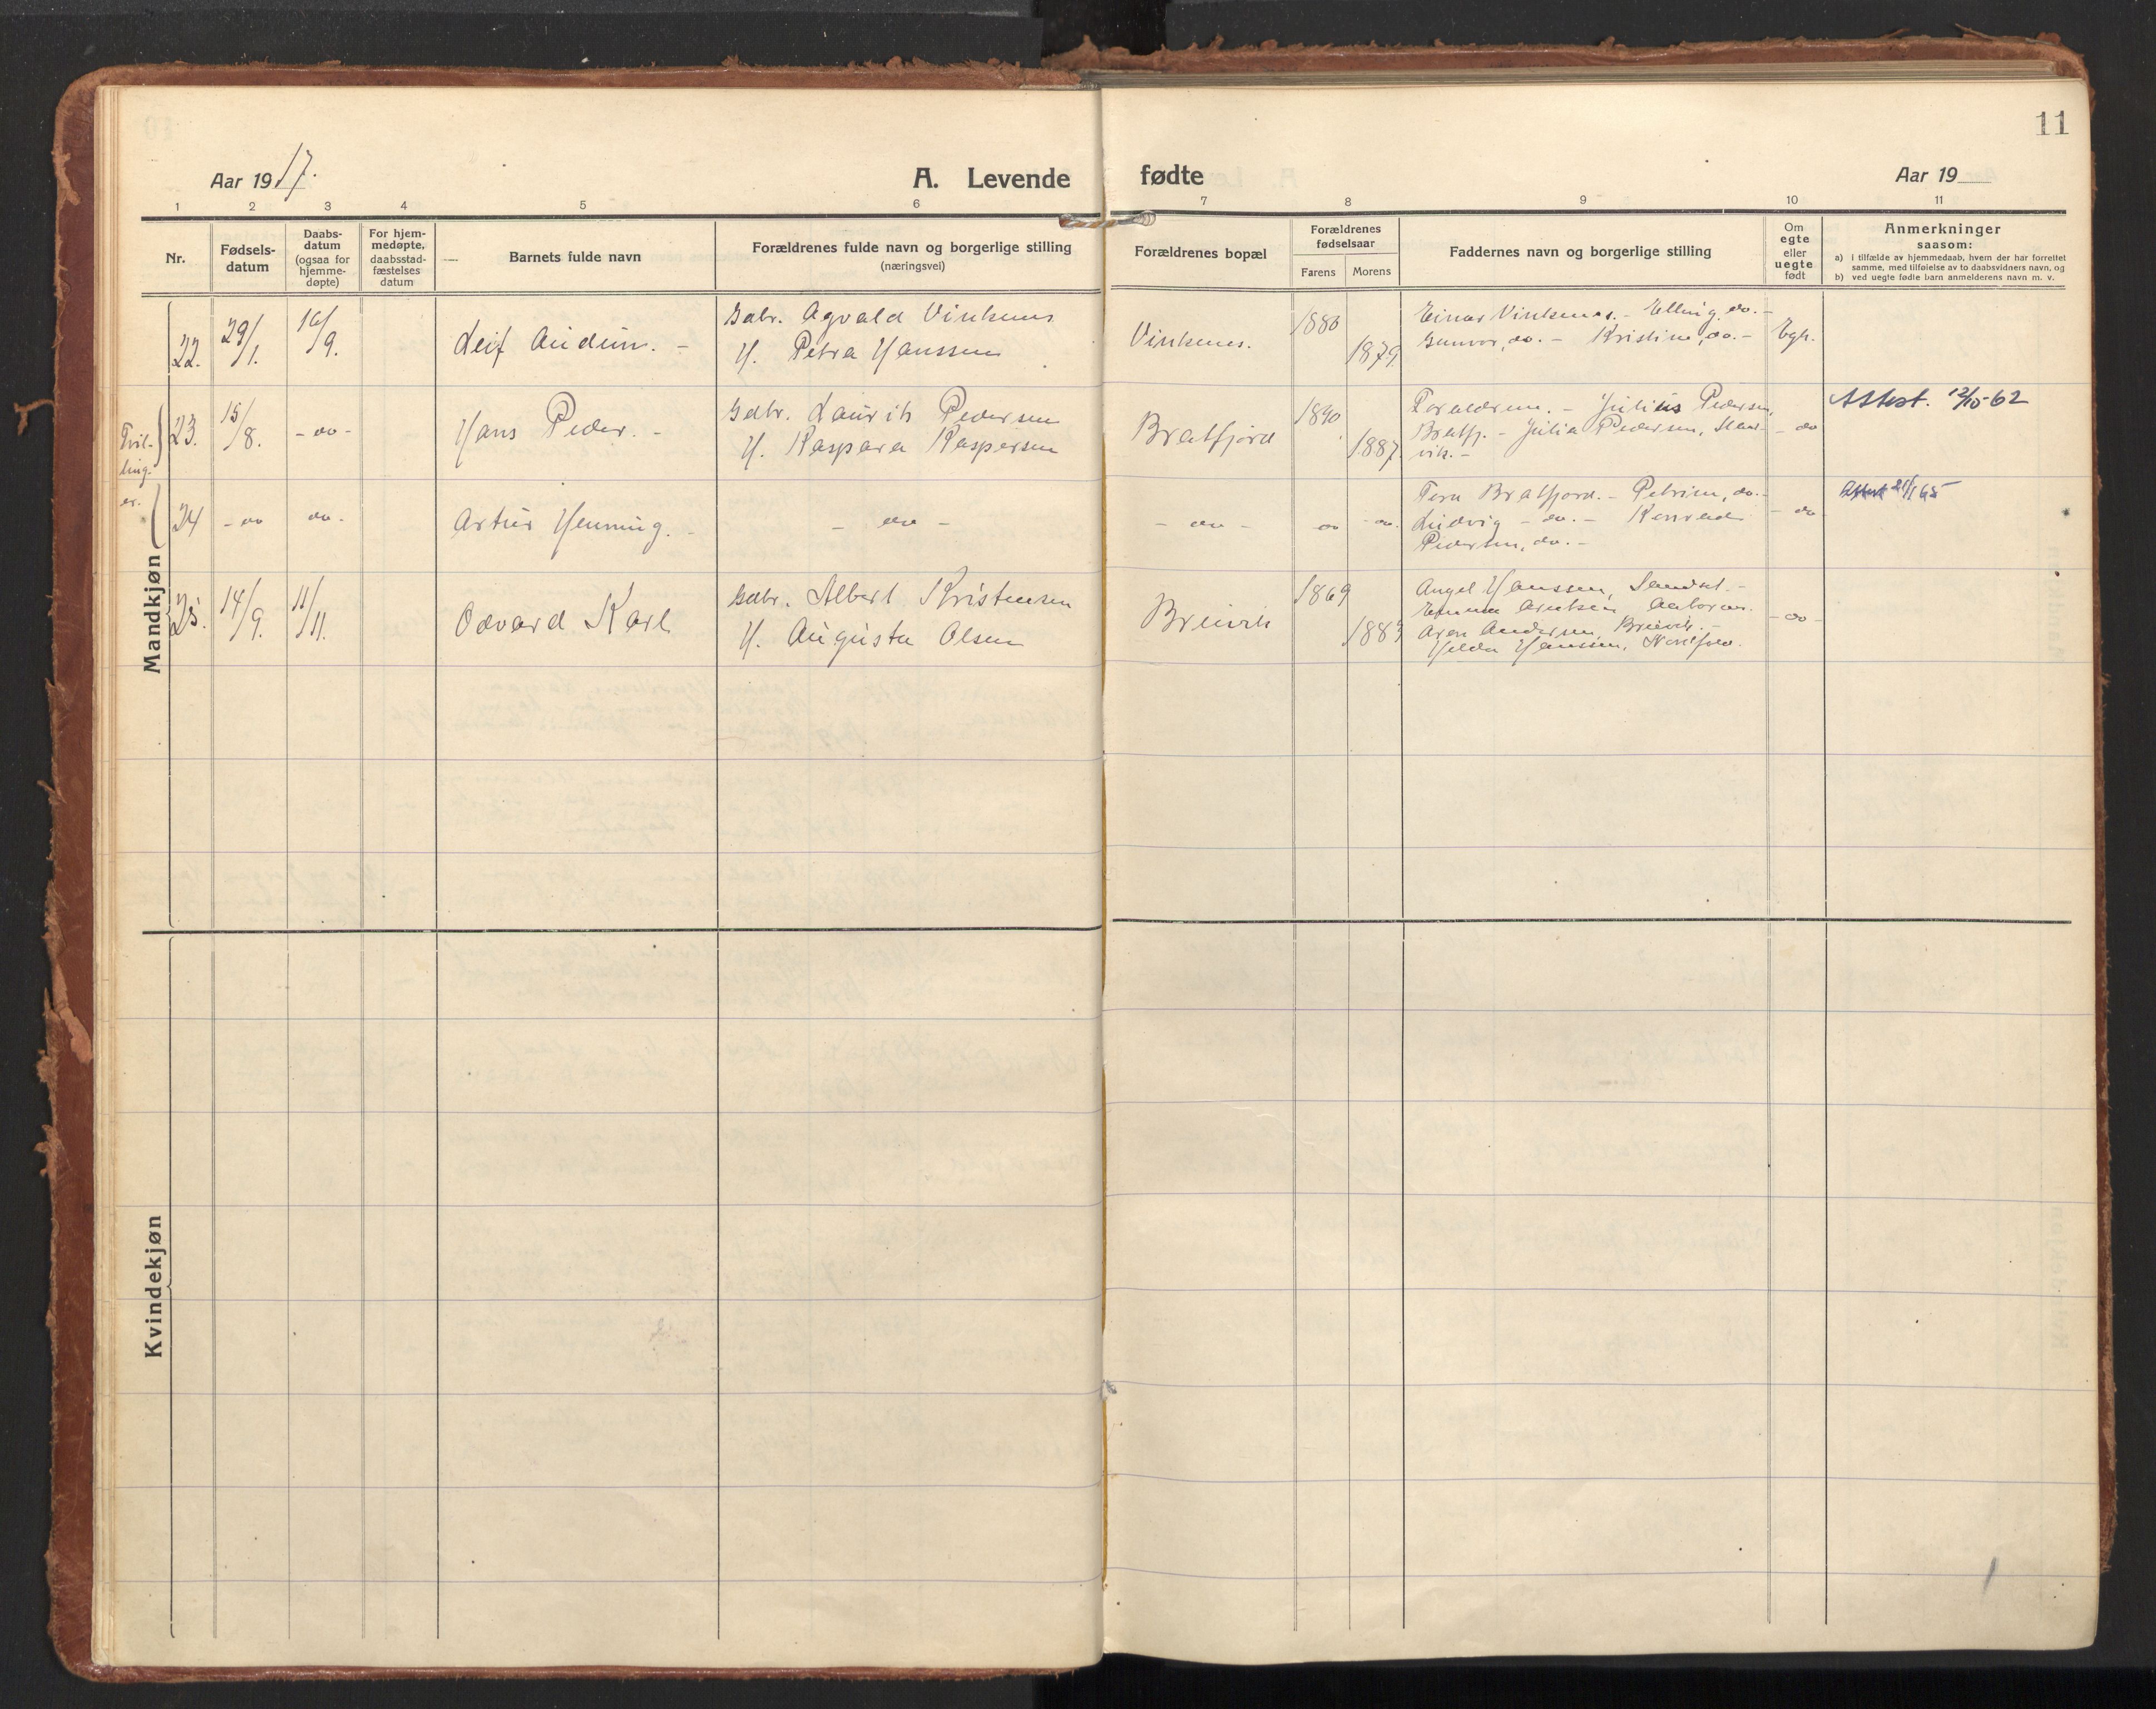 11
Aar 1917.
A. Levende fødte
Aar 19
1 2 3 4 5 6 7 8 9 10 11
Nr.
Fødsels-
datum
Daabs-
datum
(ogsaa for
hjemme-
døpte)
For hjem-
medøpte,
daabsstad-
fæstelses
datum
Barnets fulde navn
Forældrenes fulde navn og borgerlige stilling
(næringsvei)
Forældrenes bopæl
Forældrenes
fødselsaar
Farens Morens
Faddernes navn og borgerlige stilling
Om
egte
eller
uegte
født
Anmerkninger
saasom:
a) i tilfælde av hjemmedaab, hvem der har forrettet
samme, med tilføielse av to daabsvidners navn, og
b) ved uegte fødte barn anmelderens navn m. v.
Mandkjøn
22. 29/1. 16/9. Leif Audun. -
Gdbr. Agvald Vinkenes
H. Petra Hanssen
Vinkenes.
1886
1879
Einar Vinkenes. - Elling, do. -
Gunvor, do. - Kristine, do. -
Egt.
Tvil-
ling-
er.
23. 15/8. - do - Hans Peder. -
Gdbr. Laurits Pedersen
H. Kaspara Kaspersen
Bratfjord
1890
1887
Forældrene. - Julius Pedersen,
Bratfj. - Julia Pedersen,
vik. -
- do
Attest. 12/10-62
24 - do do - Artur Henning. -
- do -
- do - do - do.
Bratfjord. - Petrine, do. -
Ludvig - do. - Konrad
Pedersen, do. -
- do
Attest 21/1 65
25. 14/9. 11/11. Odvard Karl
Gdbr. Albert Kristensen
H. Augusta Olsen
Breivik
1869
1883
Angel Hanssen, Sandset. -
Emma Arntsen,
Agen Andersen, Breivik. -
Helda Hanssen,
- do -
Kvindekjøn